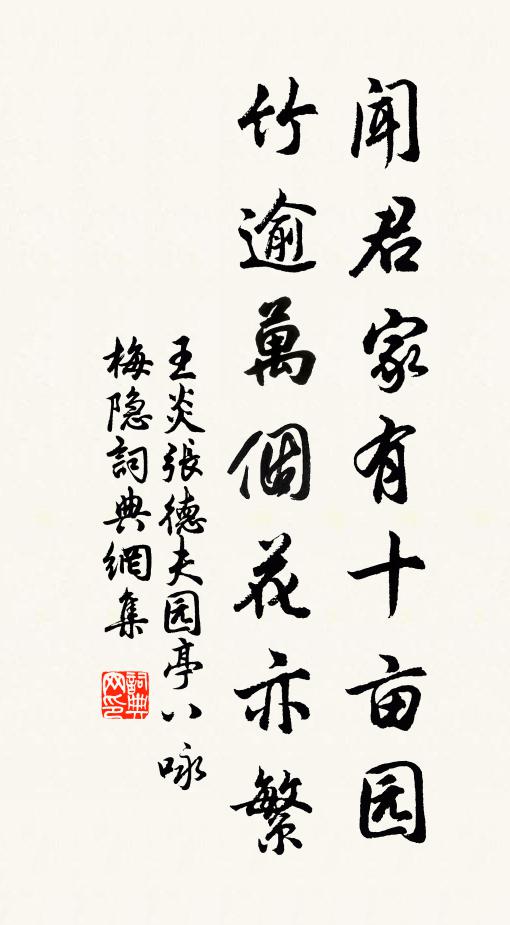 闻君家有十亩园
竹逾萬個花亦繁
王炎張德夫园亭八咏
梅隐詞典網集
詞典网印